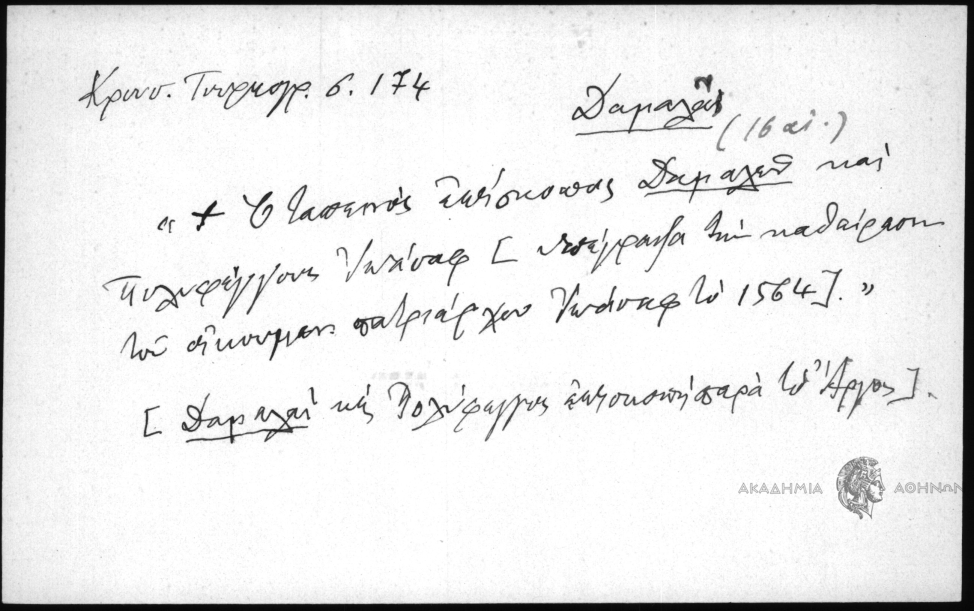 Κρουσ. Τουρκογρ. σ. 174
Δαμαλᾶς
(16 αἰ.)
« + Ὁ ταπεινὸς ἐπίσκοπος Δαμαλῶ καὶ
Πολυφέγγους Ἰωάσαφ [ὑπέγραψα τὴν καθαίρεσιν
τοῦ οἰκουμεν. πατριάρχου Ἰωάσαφ τῷ 1564]. »
[Δαμαλᾶ καὶ Πολύφεγγος ἐπισκοπὴ παρὰ τὸ Ἄργος].
ΑΚΑΔΗΜΙΑ ΑΘΗΝΩΝ